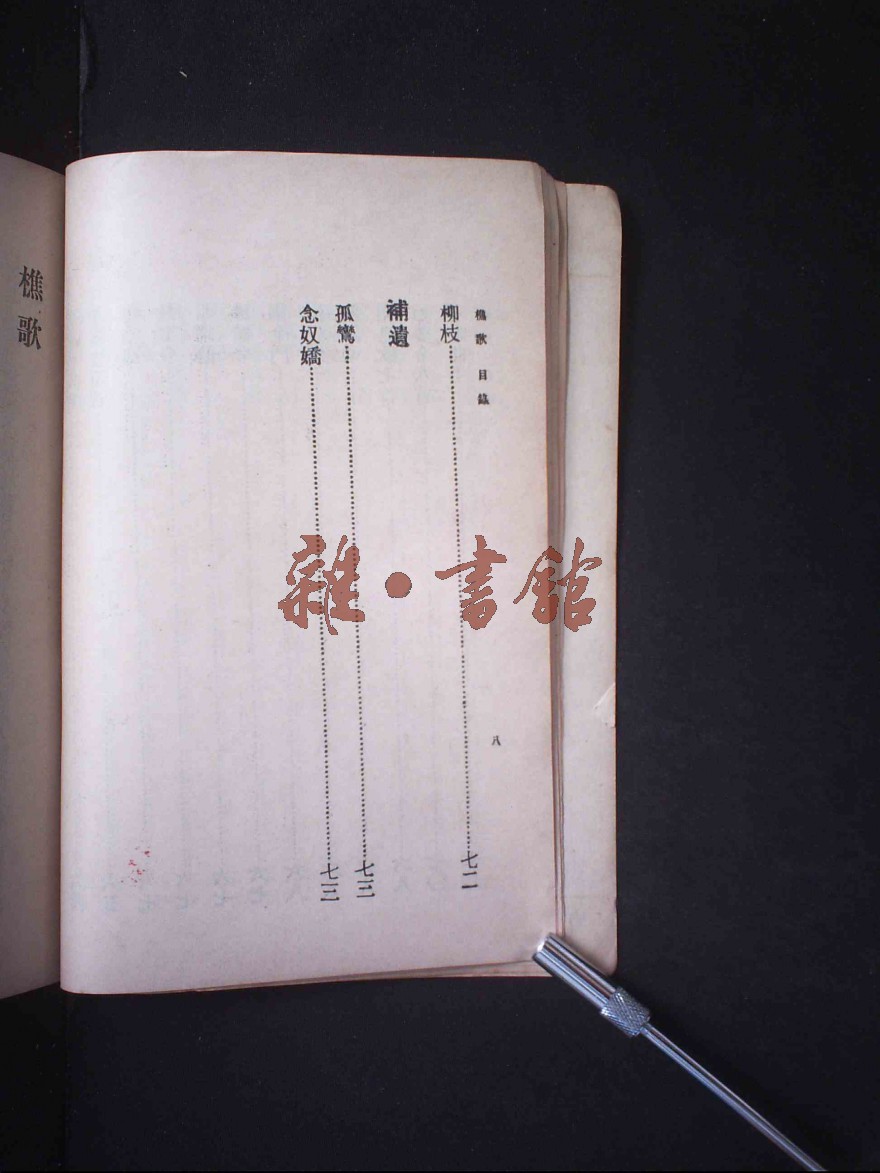 樵歌 目錄
八
柳枝……七二
補遺
孤鸞……七三
念奴嬌……七三
樵歌
雜·書館